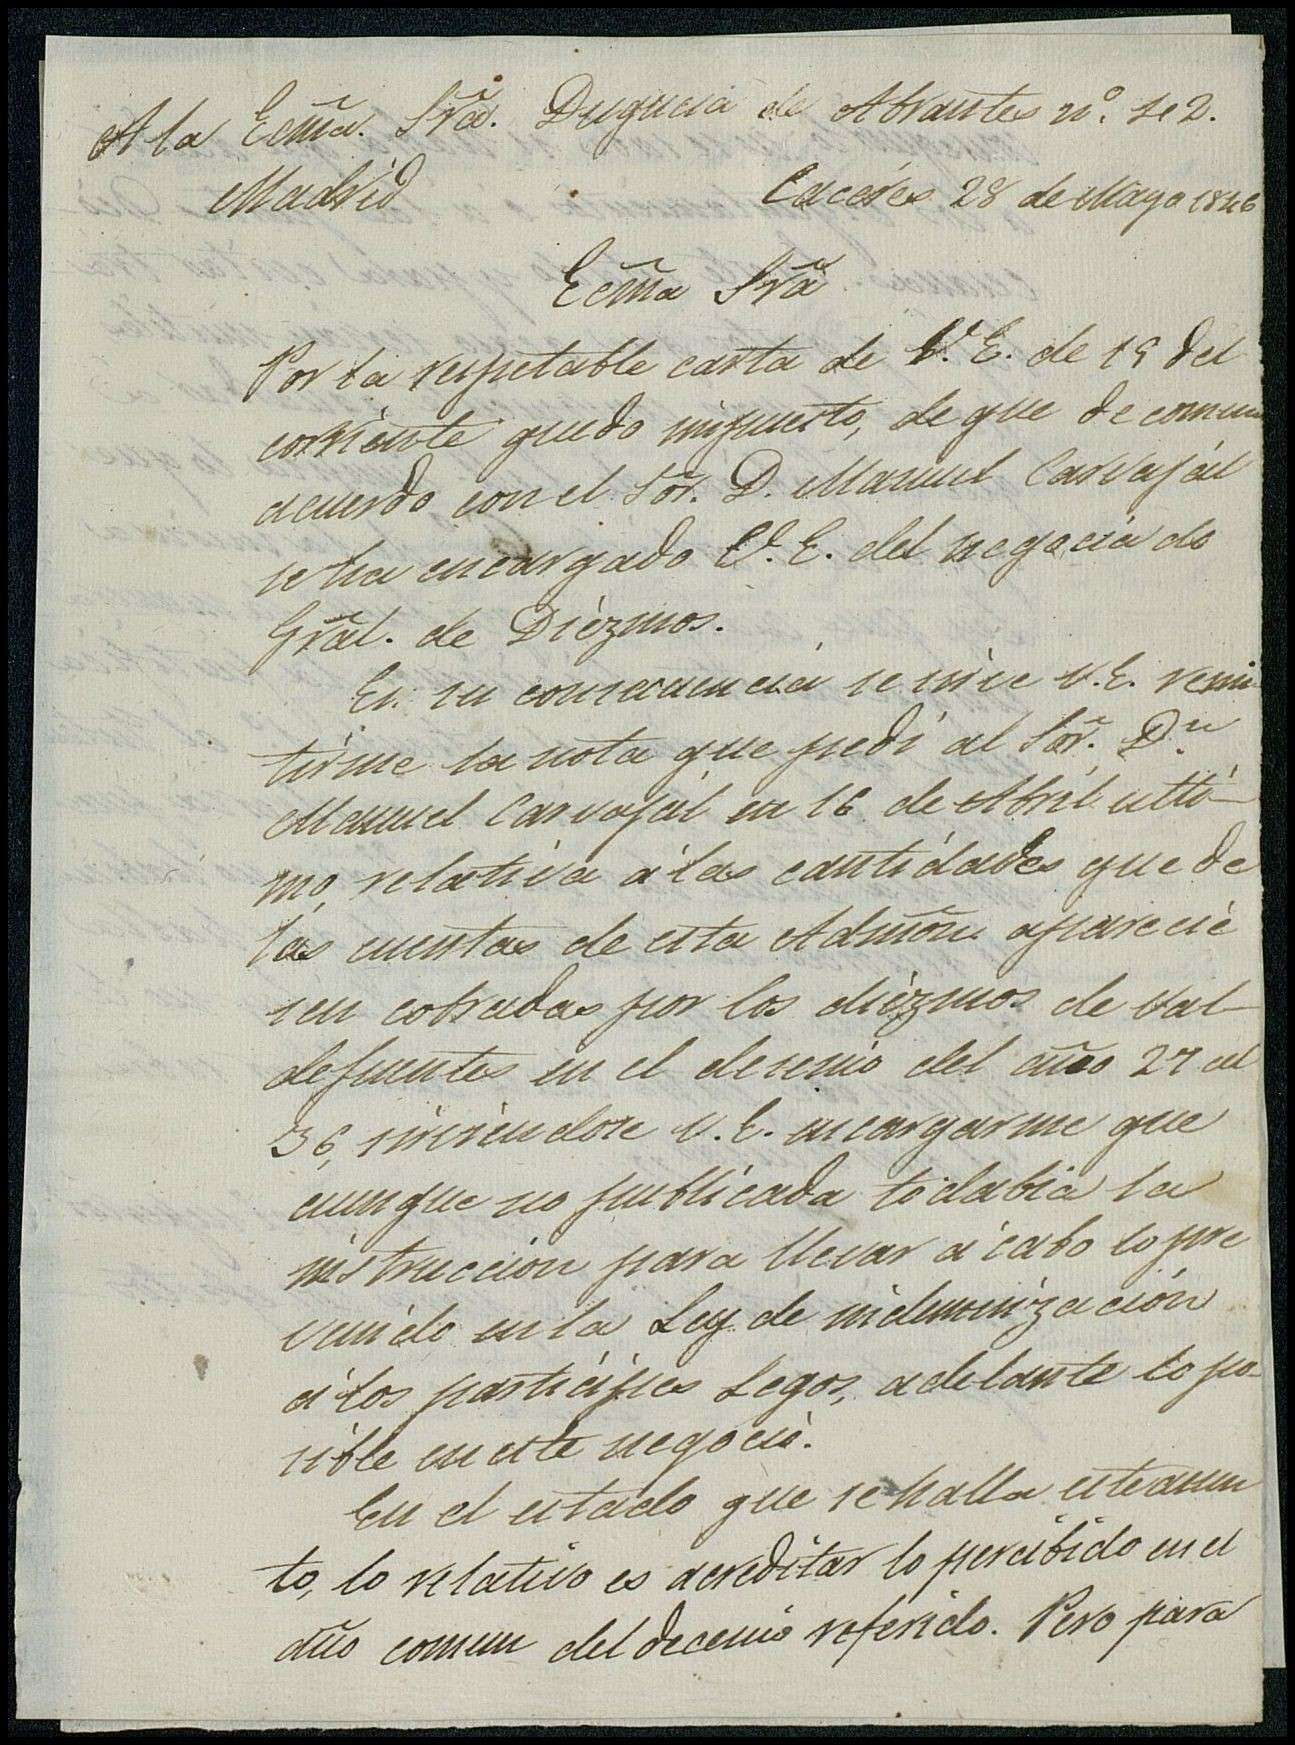 A la Ecm̃a. Srã. Duquesa de Abrantes nº. 1 e 2.
Madrid
Caceres 28 de Mayo 1846
Ecm̃a Srã
Por la respetable carta de V. E. de 19 del
corriente quedo impuesto, de que de comun
acuerdo con el Sõr. D. Manuel Carvajál
se ha encargado V. E. del negociado
Grãl. de Diézmos.
En su consecuencia se sirve V. E. remi-
tirme la nota que pedí al Sõr. Dn
Manuel Carvajál en 16 de Abril ulti-
mo, relativa á las cantidades que de
las cuentas de esta Admõn. aparecie
sen cobradas por los diézmos de Val-
defuentes en el decenio del año 27 al
36, sirviendose V. E. encargarme que
aunque no publicada todabia la
instruccion para llevar á cabo lo pre
venido en la Ley de indemnización
á los participes Legos, adelante lo po-
sible en este negocio.
En el estado que se halla este asun
to, lo relativo es acreditar lo percibido en el
año comun del decenio referido. Pero para